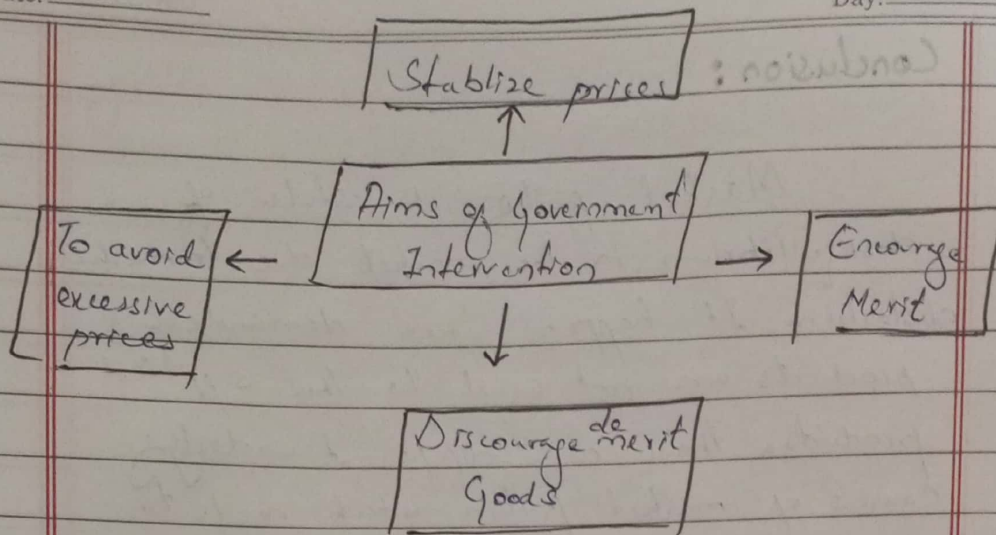 Day:
Conclusion:
Stablize prices
Aims of Government
Intervention
To avoid
excessive
prices
Encourge
Merit
Discourage de merit
Goods